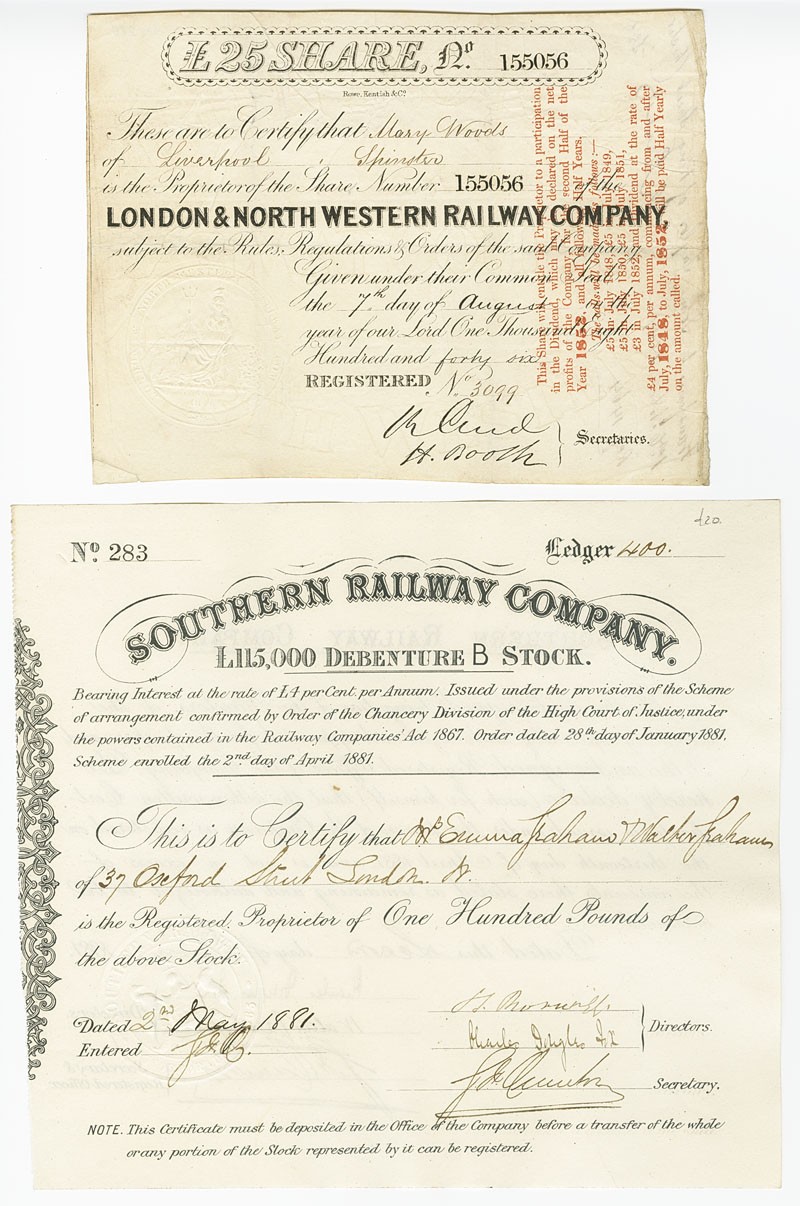 £25 SHARE, No. 155056
Rowe, Kentish & Co.
These are to Certify that Mary Woods
of Liverpool, Spinster
is the Proprietor of the Share Number 155056 of the
LONDON & NORTH WESTERN RAILWAY COMPANY,
subject to the Rules, Regulations & Orders of the said Company
Given under their Common Seal
the 7th day of August in the
year of our Lord One Thousand Eight
Hundred and forty six
REGISTERED No 3099
H. Booth
Secretaries.
This Share will entitle the Proprietor to a participation
in the Dividend, which may be declared on the net
profits of the Company, for the second Half of the
Year 1852, and all following Half Years.
The calls will be made as follows:—
£5 in July 1848, £5 in July 1849,
£5 in July 1850, £5 in July 1851,
£3 in July 1852, and Dividend at the rate of
£4 per cent, per annum, commencing from and after
July, 1848, to July, 1852, will be paid Half Yearly
on the amount called.
£20.
No. 283 Ledger 400.
SOUTHERN RAILWAY COMPANY.
£115,000 DEBENTURE B STOCK.
Bearing Interest at the rate of £4 per Cent. per Annum. Issued under the provisions of the Scheme
of arrangement confirmed by Order of the Chancery Division of the High Court of Justice, under
the powers contained in the Railway Companies' Act 1867. Order dated 28th day of January 1881.
Scheme enrolled the 2nd day of April 1881.
This is to Certify that Mrs Emma Graham & Walter Graham
of 37 Oxford Street London. W.
is the Registered Proprietor of One Hundred Pounds of
the above Stock.
Dated 2nd May 1881.
Entered
Charles Douglas Fox
Directors.
Secretary.
NOTE. This Certificate must be deposited in the Office of the Company before a transfer of the whole
or any portion of the Stock represented by it can be registered.